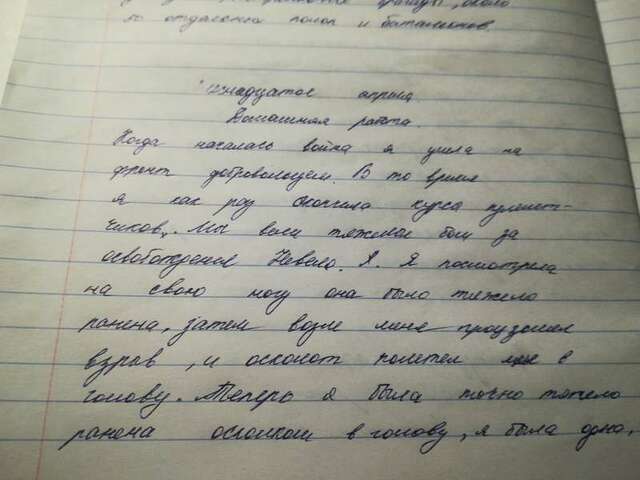 то отдаленка полол и батальонов.
12надцатое апреля.
Домашняя работа.
Когда началась война я ушла на
фронт добровольцем. В то время
я как раз окончила курса пулемет-
чиков. Мы вели тяжелые бои за
освобождение Невело. Я. Я посмотрела
на свою ногу она было тяжело
ранена, затем возле меня произошел
взрыв, и осколот полетел мне в
голову. Теперь я была точно тяжело
ранена осколком в голову, я была одна,